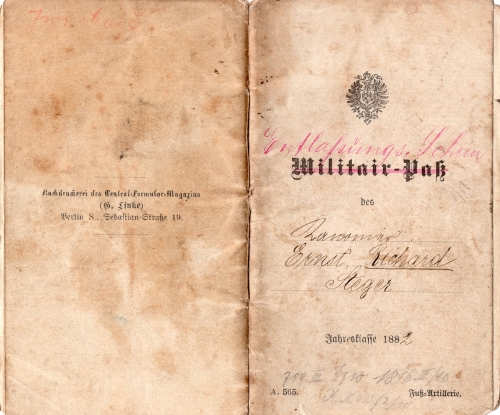 Buchdruckerei des Central-Formular-Magazins
(G. Linke)
Berlin S., Sebastian-Straße 19.
Entlaßungs-Schein
Militair-Paß
des
Ernst Richard
Steger
Jahresklasse 1882
A. 565.
Fuß-Artillerie.